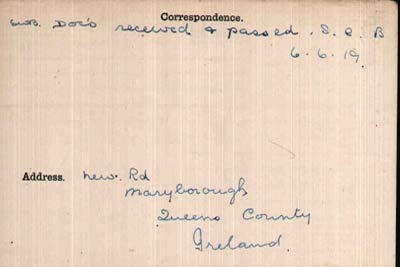 Correspondence.
SWB. Doc's received & passed. S. C. B
6. 6. 19
Address. New. Rd
Maryborough
Queens County
Ireland